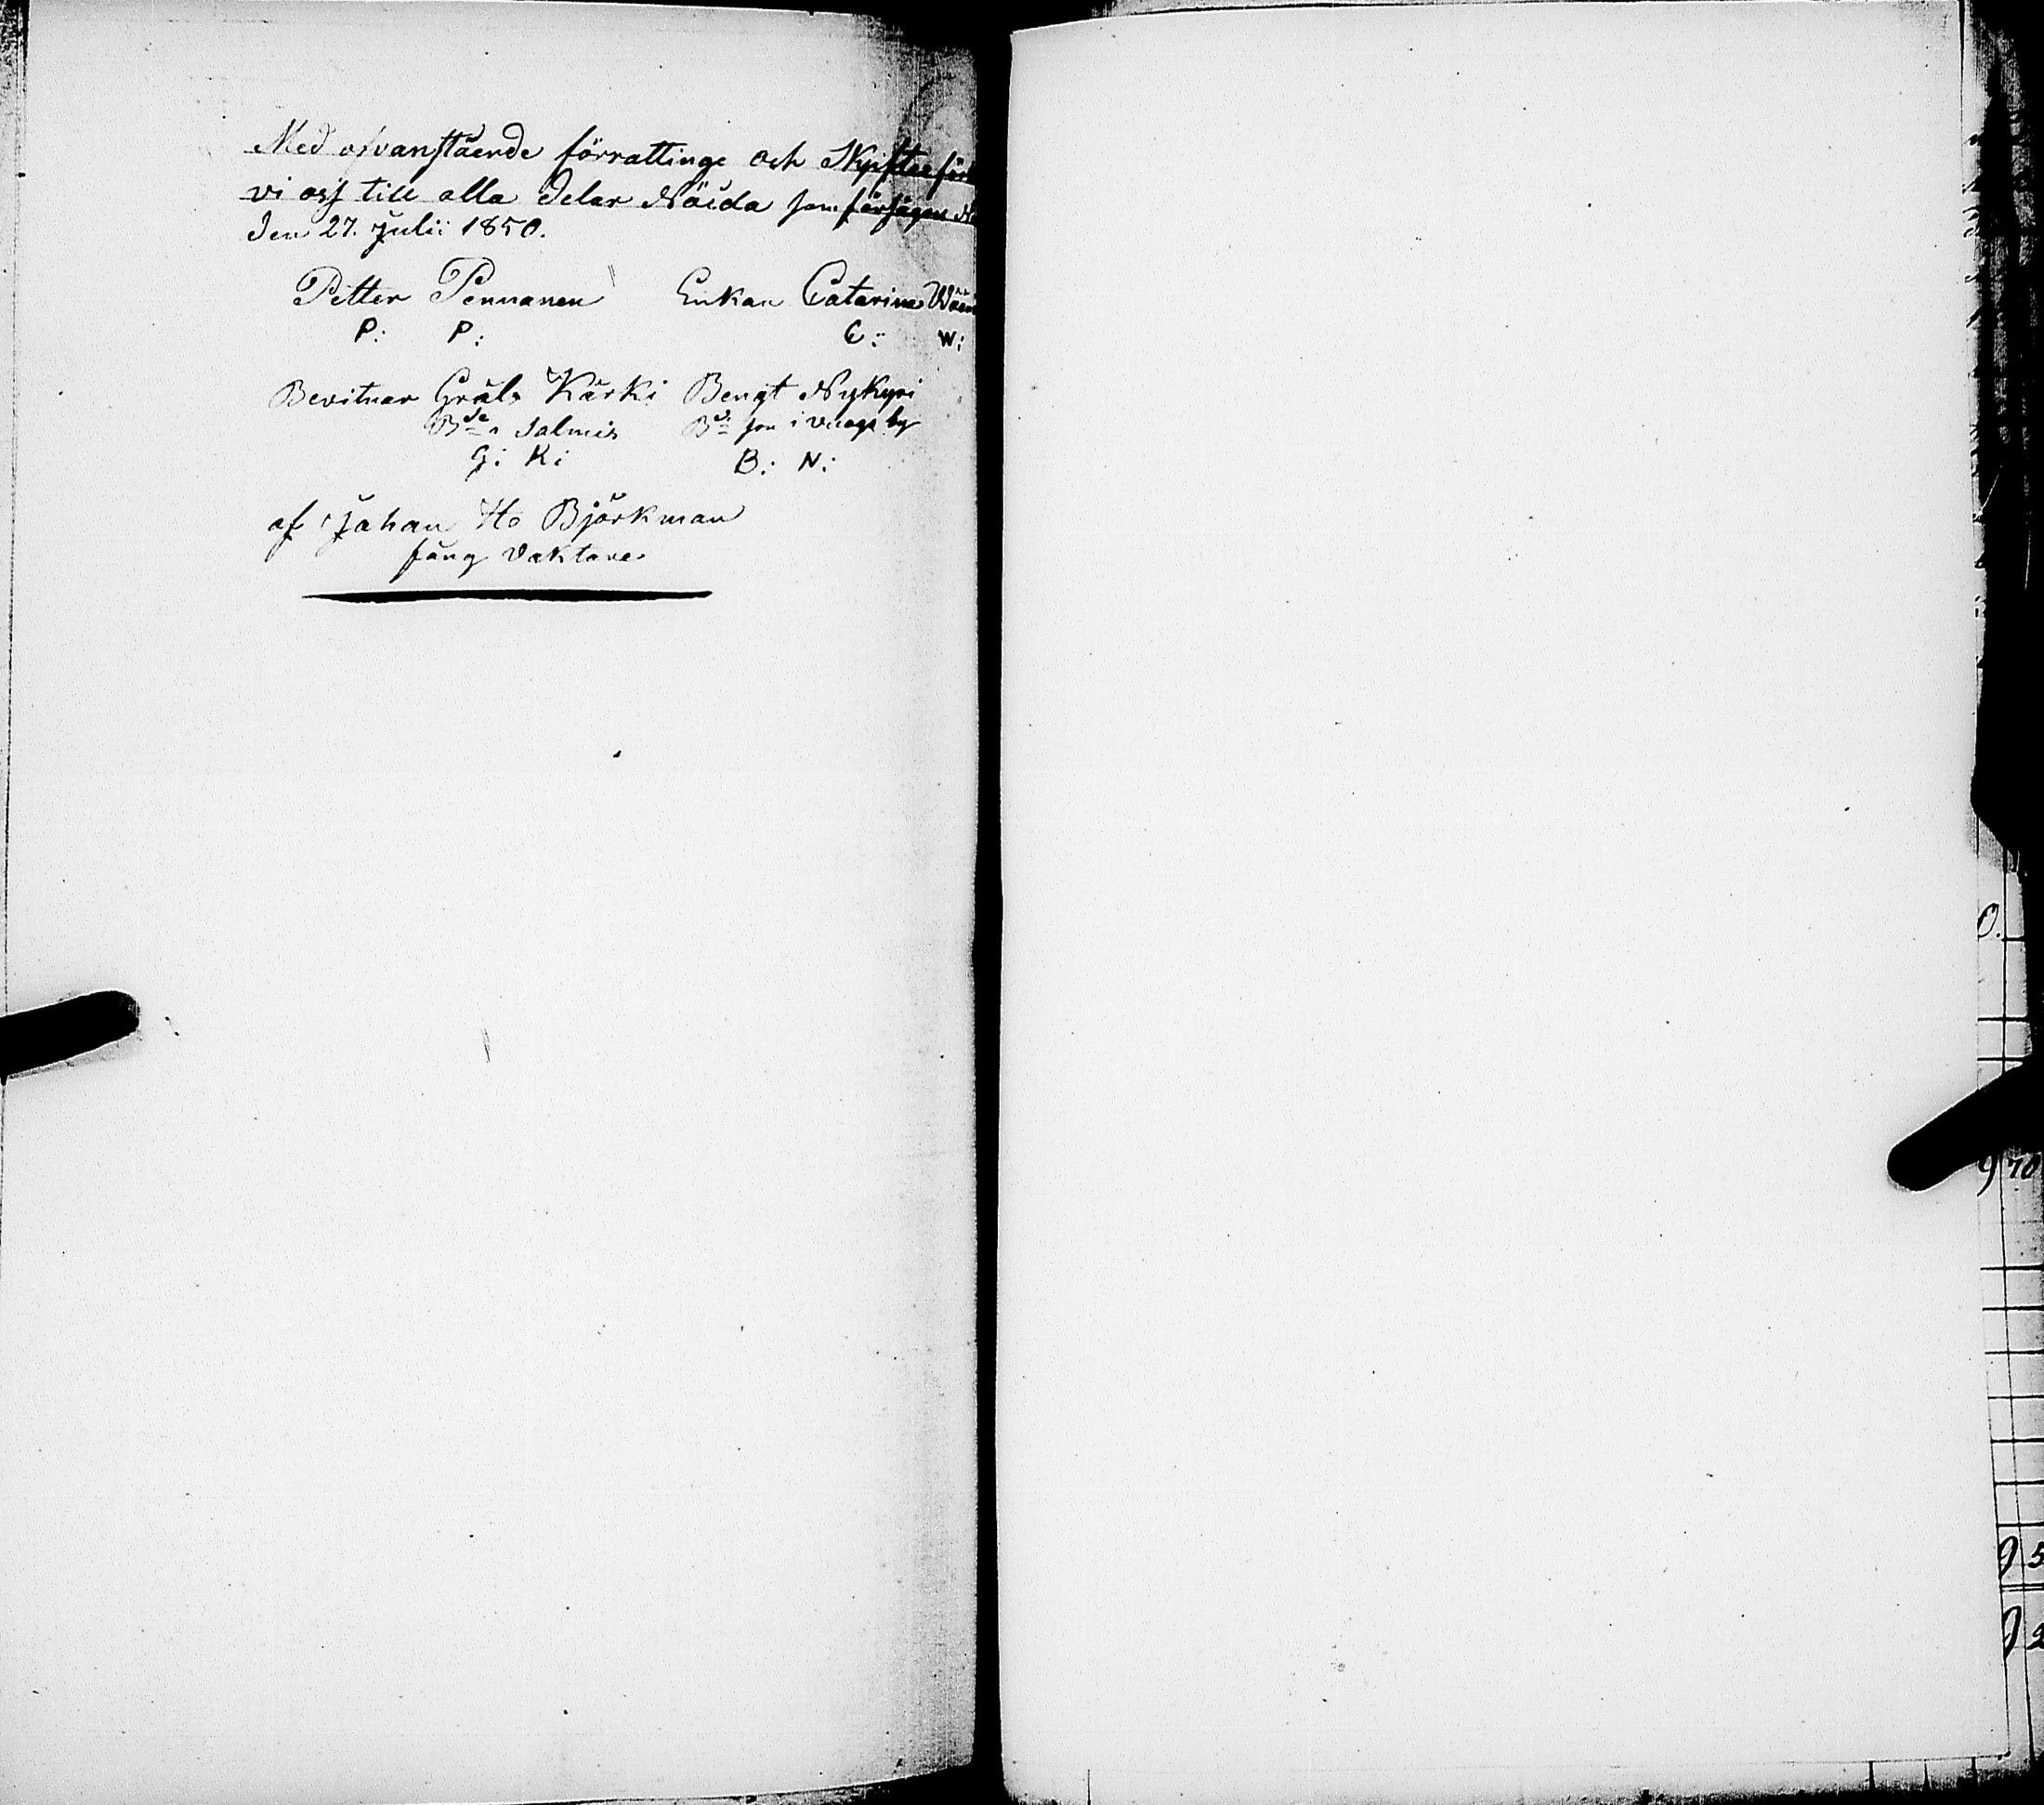 Med ofvanstäende förrattinge och Skpiftee för
vi oss till alla delar Nöida som försägen
Den 27. Julii 1850.
Petter Pennanen Enkan Catarina
P: P: C: W:
Bevitnar Gräls Kärki Bengt Nykyri
Bde Salmis Bd son i by
G: K: B: N:
af Johan Ho Björkman
fång vaktare
0.
9 70
5
2